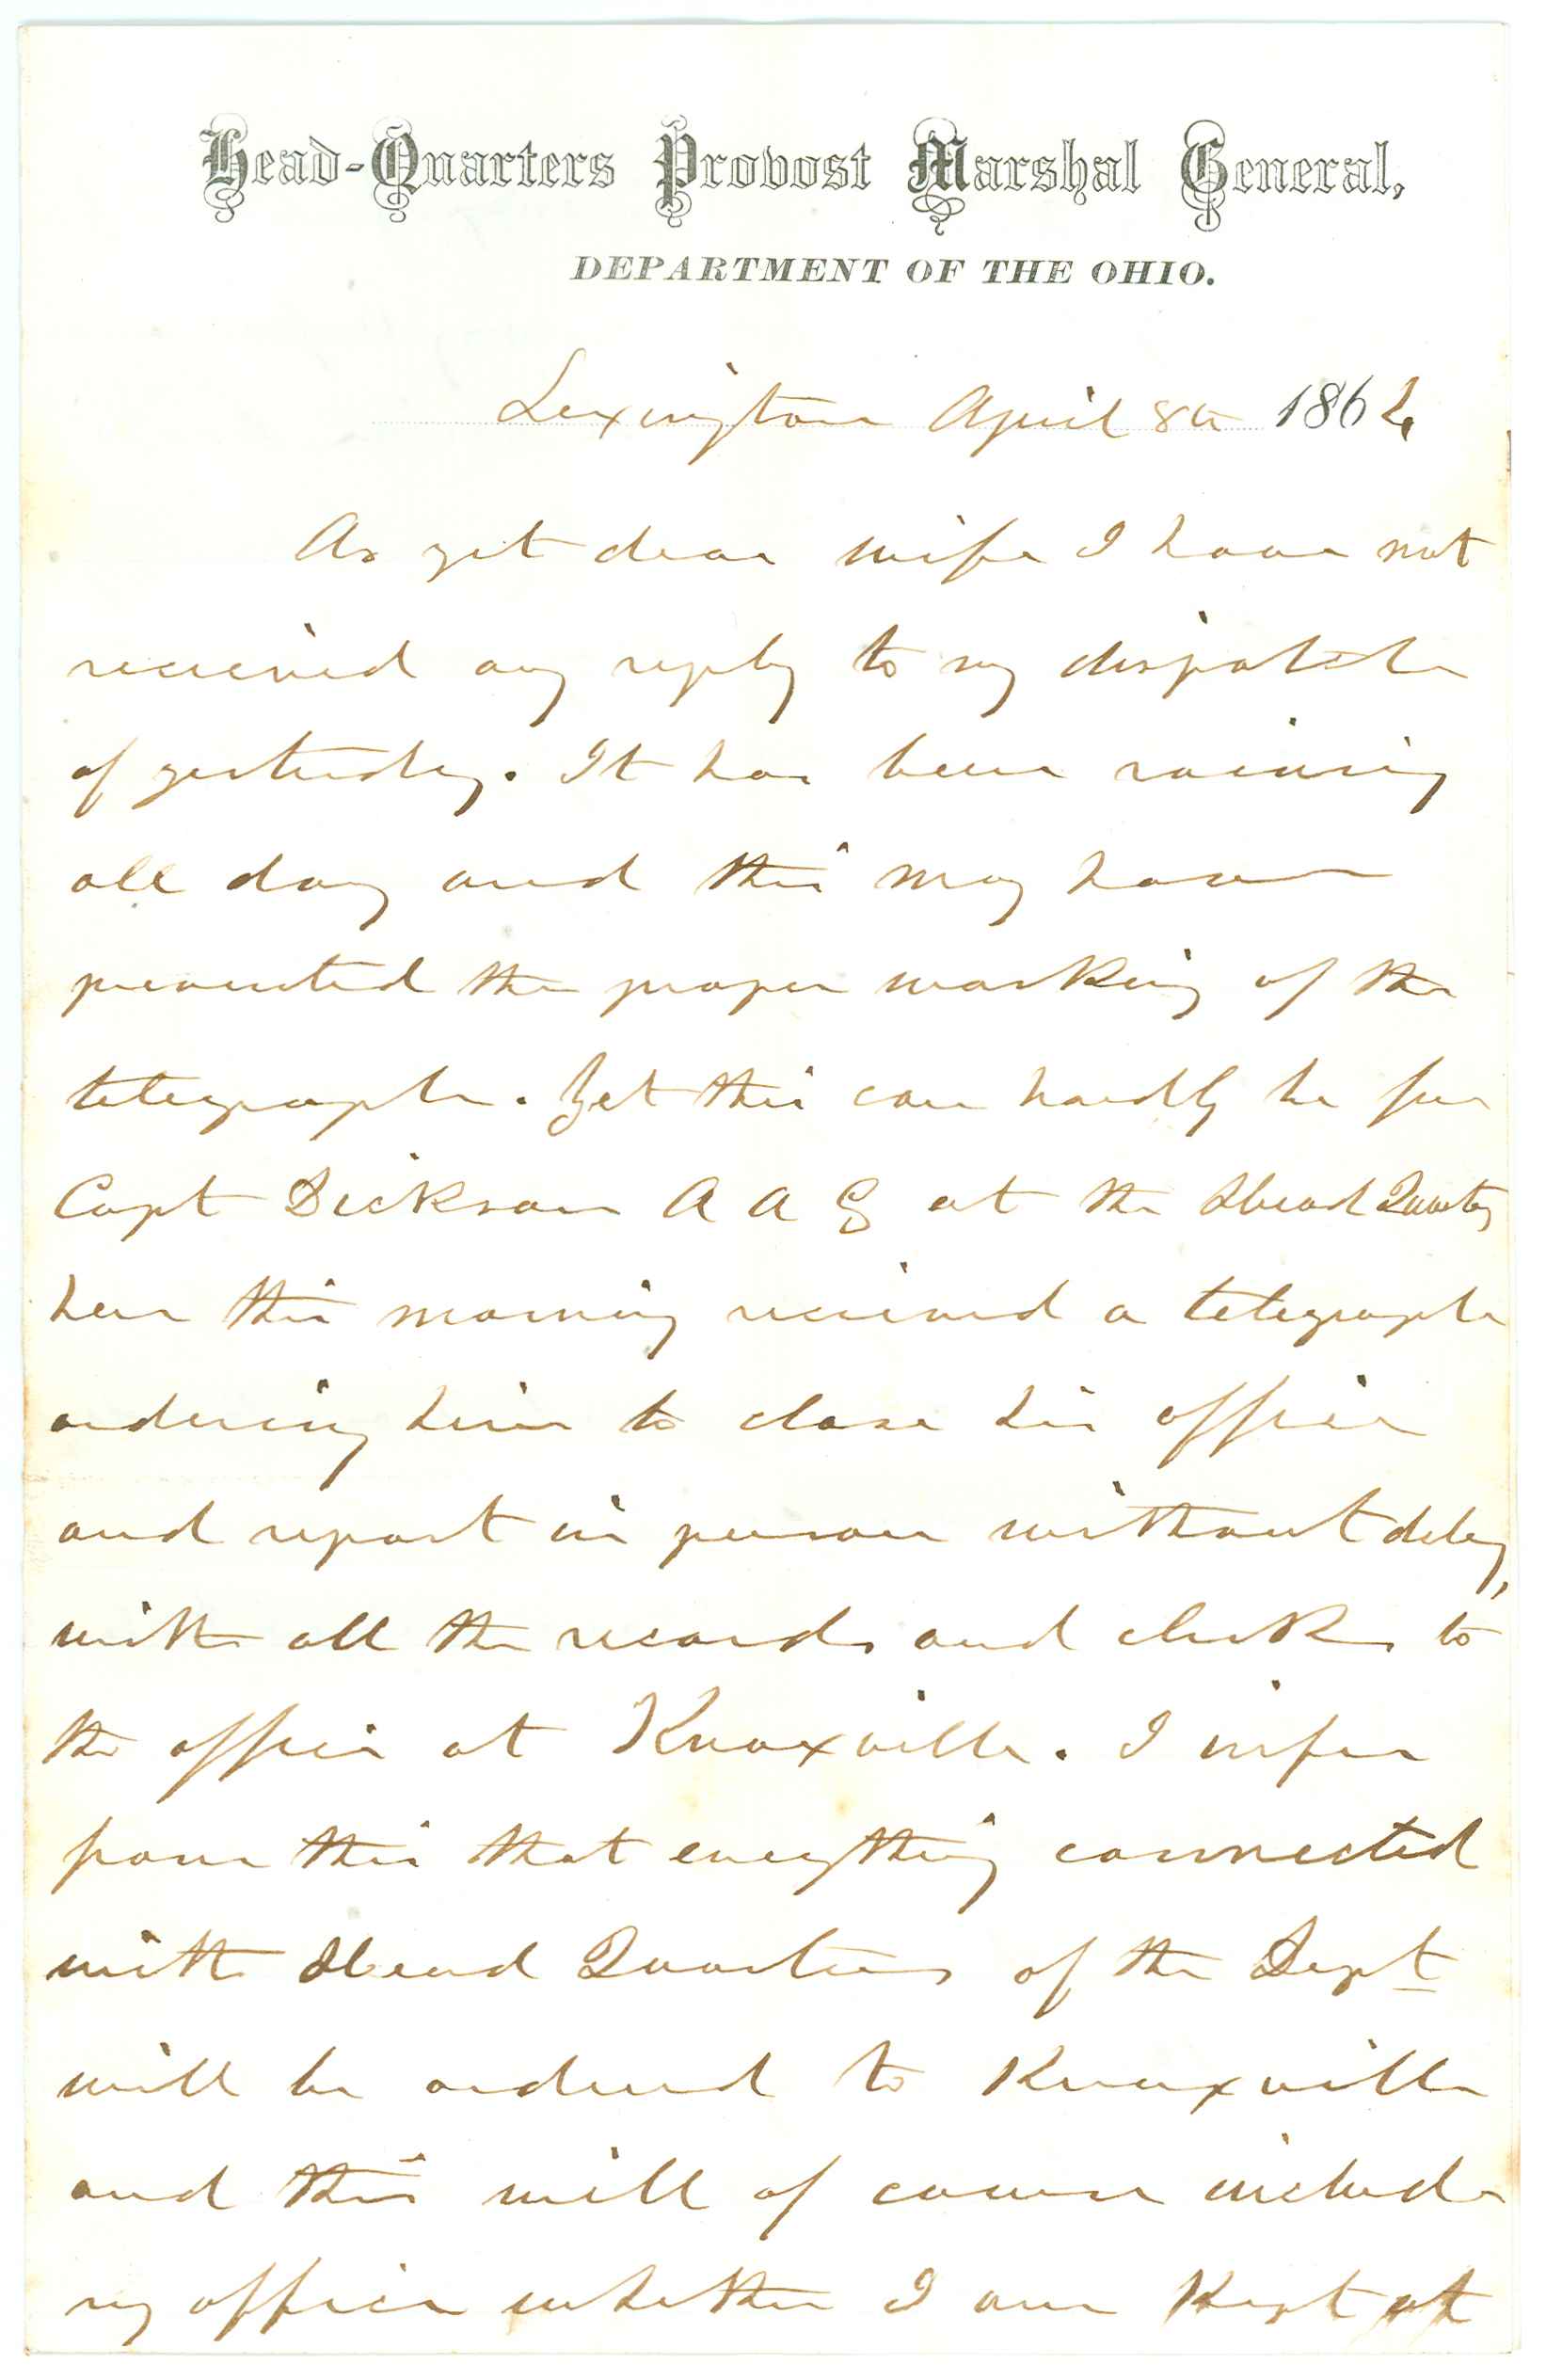 Head-Quarters Provost Marshal General,
DEPARTMENT OF THE OHIO.
Lexington April 8th 1864
As yet dear wife I have not
recieved any reply to my dispatch
of yesterday. It has been raining
all day and this may have
prevented the proper working of the
telegraph. Yet this can hardly be for
Capt Dickson A A G at the Head Quarters
here this morning recieved a telegraph
ordering him to close his office
and report in person without delay,
with all the records and clerks to
the office at Knoxville. I infer
from this that everything connected
with Head Quarters of the Dept
will be ordered to Knoxville
and this will of course include
my office whether I am kept at